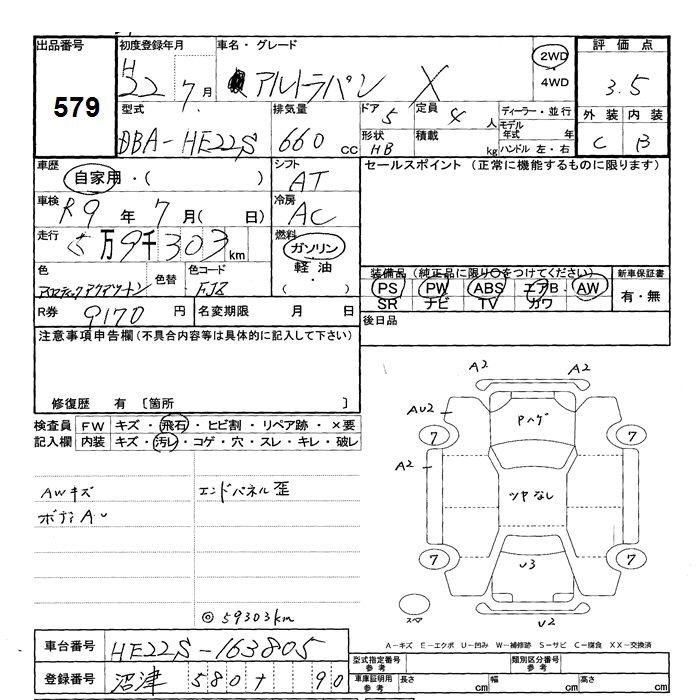 出品番号 初度登録年月 車名・グレード 評価点
579 H22 7月 アルトラパン X 2WD 4WD 3.5
型式 排気量 ドア 定員 ディーラー・並行 外装 内装
DBA-HE22S 660cc 5 4人 モデル年式 年 C B
形状 HB 積載 kg ハンドル 左・右
車歴 シフト セールスポイント (正常に機能するものに限ります)
自家用・( ) AT
車検 冷房
R9年7月( 日) AC
走行 燃料
5万9千303km ガソリン
色 色替 色コード 軽油・ 装備品 (純正品に限り○をつけてください) 新車保証書
ZJ8 ( ) PS PW ABS エアB. AW 有・無
SR ナビ TV カワ
R券 9170円 名変期限 月 日 後日品
注意事項申告欄(不具合内容等は具体的に記入して下さい)
修復歴 有 [箇所 ]
検査員 FW キズ・飛石・ヒビ割・リペア跡・×要
記入欄 内装 キズ・汚レ・コゲ・穴・スレ・キレ・破レ
AWキズ エンドパネル歪
ボディAU
◎59303km
A2 A2
AU2 Pハゲ
7 7
A2
ツヤなし
7 U3 7
スペア U2
A-キズ E-エクボ U-凹み W-補修跡 S-サビ C-腐食 XX-交換済
車台番号 HE22S-163805
型式指定番号 参考 類別区分番号 参考
登録番号 沼津 580 90
車庫証明用 参考 長さ cm 幅 cm 高さ cm